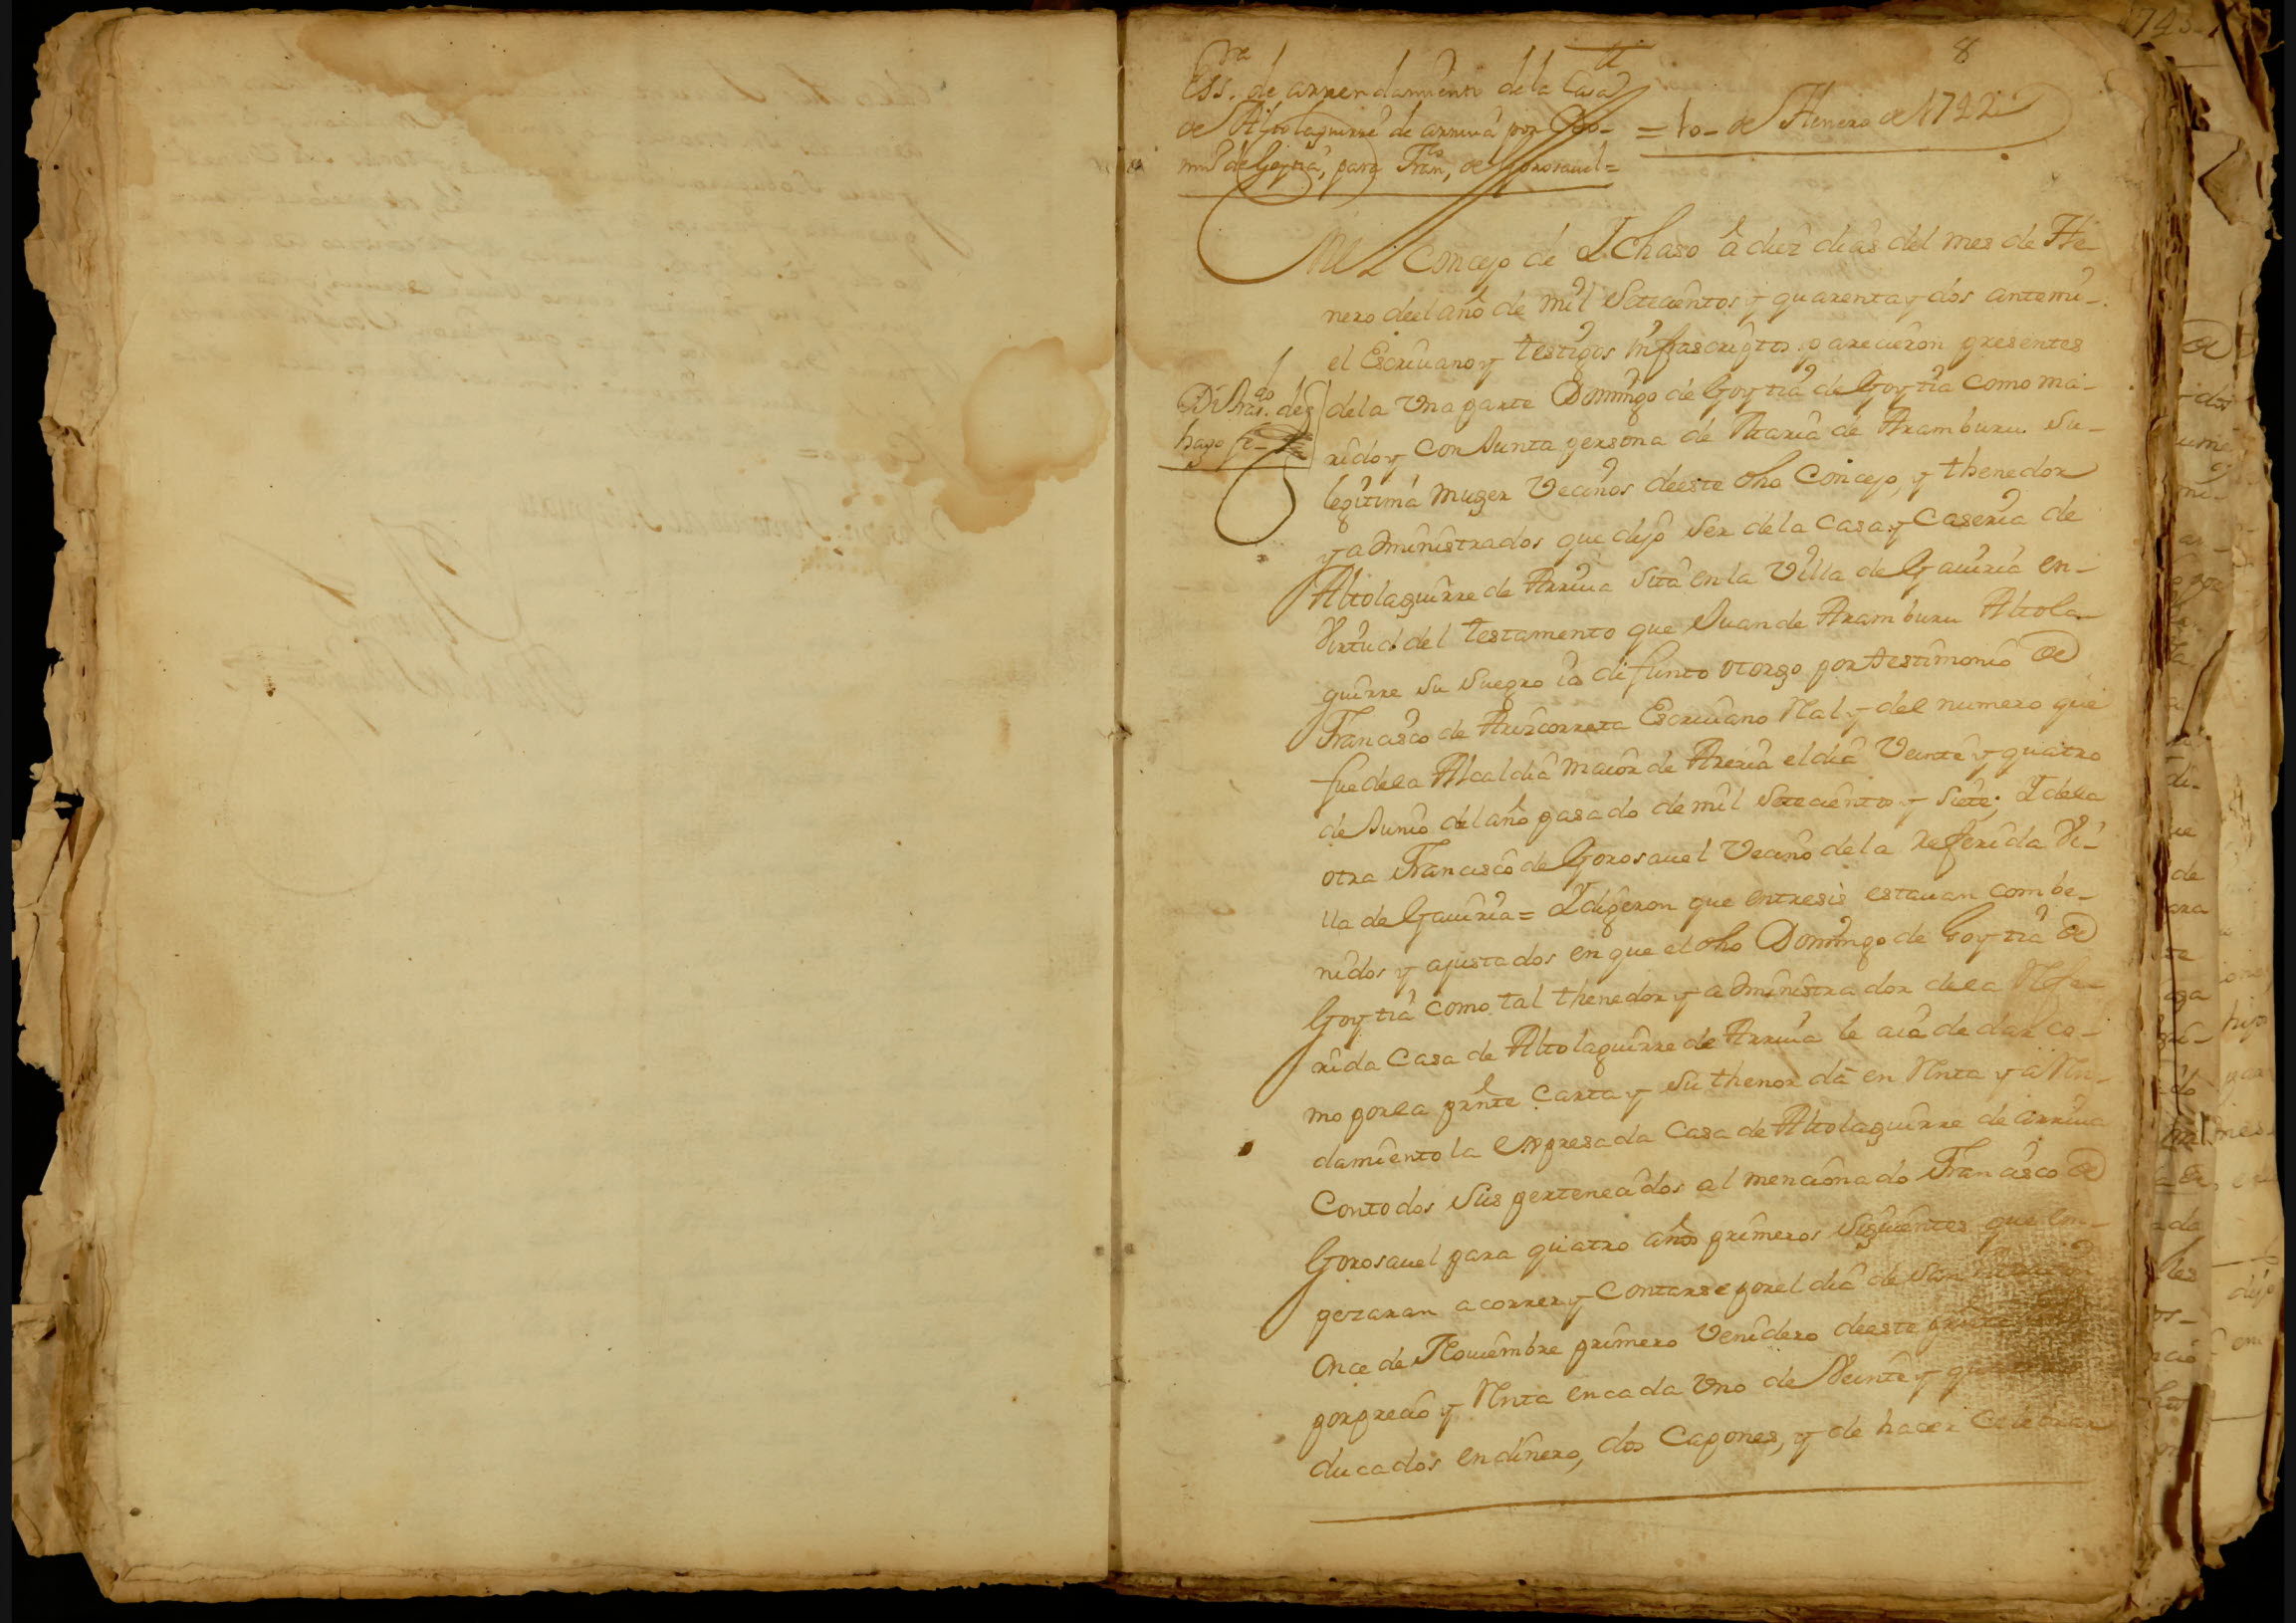 8
Ess.ra de arrendamiento dela Casa
de Altolaguirre de arriua por Do-
mi.o de Goytia, para Fran.co de Gorosauel=
= 10- de Henero de 1742
En el Concejo de Ychaso â diez dias del mes de He-
nero deel año de mil Setecientos y quarenta y dos antemi-
el Escriuano y testigos infrascriptos parecieron presentes
dela Una parte Domingo de Goytia de Goytia como ma-
rido y conJunta persona de Maria de Aramburu su-
legitima Muger Vecinos deeste dho Concejo, y thenedor
y administrados que dijo ser dela Casa y Caseria de
Altolaguirre de Arriua sita en la Villa de Gauiria en-
Virtud del testamento que Juan de Aramburu Altola-
guirre su suegro ia difunto otorgo por testimonio de
Francisco de Ariscorreta Escriuano Ral y del numero que
fue dela Alcaldia maior de Areria el dia Veinte y quatro
de Junio del año pasado de mil Setecientos y siete; Y dela
otra Francisco de Gorosauel Vecino dela referida Vi-
lla de Gauiria= Y digeron que entresis estauan combe-
nidos y ajustados en que el dho Domingo de Goytia de
Goytia como tal thenedor y administrador dela Refe-
rida Casa de Altolaguirre de Arriua le aia de dar co-
mo por la prnte Carta y su thenor da en Renta y a Ren-
damiento la expresada Casa de Altolaguirre de arriua
Con todos sus pertenecidos al mencionado Francisco de
Gorosauel para quatro años primeros siguientes que em-
pezaran a correr y Contarse por el dia de San
Once de Nouiembre primero Venidero deeste prnte
por precio y Renta en cada Uno de Veinte y
ducados en dinero, dos Capones, y de hacer celebrar
hago fe-